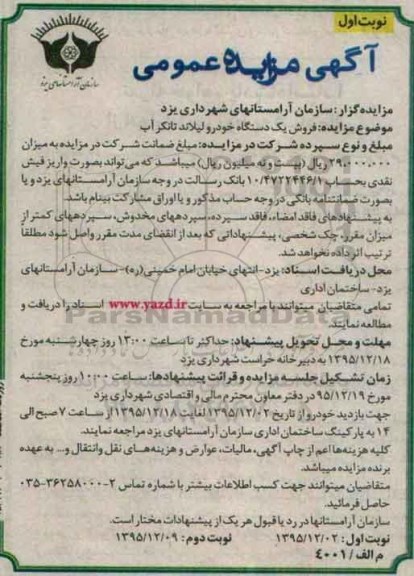 نوبت اول
سازمان آرامستانهای یزد
آگهی مزایده عمومی
مزایده گزار: سازمان آرامستانهای شهرداری یزد
موضوع مزایده: فروش یک دستگاه خودرو لیلاند تانکر آب
مبلغ و نوع سپرده شرکت در مزایده: مبلغ ضمانت شرکت در مزایده به میزان
۲۹،۰۰۰،۰۰۰ ریال (بیست و نه میلیون ریال) میباشد که می تواند بصورت واریز فیش
نقدی بحساب ۱۰/۴۷۲۲۴۴۶/۱ بانک رسالت در وجه سازمان آرامستانهای یزد و یا
بصورت ضمانتنامه بانکی در وجه حساب مذکور و یا اوراق مشارکت بینام باشد.
به پیشنهادهای فاقد امضاء، فاقد سپرده، سپرده‌های مخدوش، سپرده‌های کمتر از
میزان مقرر، چک شخصی، پیشنهاداتی که بعد از انقضای مدت مقرر واصل شود مطلقا
ترتیب اثر داده نخواهد شد.
محل دریافت اسناد: یزد-انتهای خیابان امام خمینی (ره)- سازمان آرامستانهای
یزد- ساختمان اداری
تمامی متقاضیان میتوانند با مراجعه به سایت www.yazd.ir اسناد را دریافت و
مطالعه نمایند.
ParsNamadData
مهلت و محل تحویل پیشنهاد: حداکثر تا ساعت ۱۳:۰۰ روز چهارشنبه مورخ
۱۳۹۵/۱۲/۱۸ به دبیرخانه حراست شهرداری یزد
زمان تشکیل جلسه مزایده و قرائت پیشنهادها: ساعت ۱۰:۰۰ روز پنجشنبه
مورخ ۹۵/۱۲/۱۹ در دفتر معاون محترم مالی و اقتصادی شهرداری یزد
جهت بازدید خودرو از تاریخ ۱۳۹۵/۱۲/۰۲ لغایت ۱۳۹۵/۱۲/۱۸ از ساعت ۷ صبح الی
۱۴ به پارکینگ ساختمان اداری سازمان آرامستانهای یزد مراجعه نمایند.
کلیه هزینه‌ها اعم از چاپ آگهی، مالیات، عوارض و هزینه‌های نقل وانتقال و... به عهده
برنده مزایده میباشد.
متقاضیان میتوانند جهت کسب اطلاعات بیشتر با شماره تماس ۲-۳۶۲۵۸۰۰۰-۰۳۵
حاصل فرمائید.
سازمان آرامستانها در رد یا قبول هر یک از پیشنهادات مختار است.
نوبت اول: ۱۳۹۵/۱۲/۰۲ نوبت دوم: ۱۳۹۵/۱۲/۰۹
م الف / ۴۰۰۱